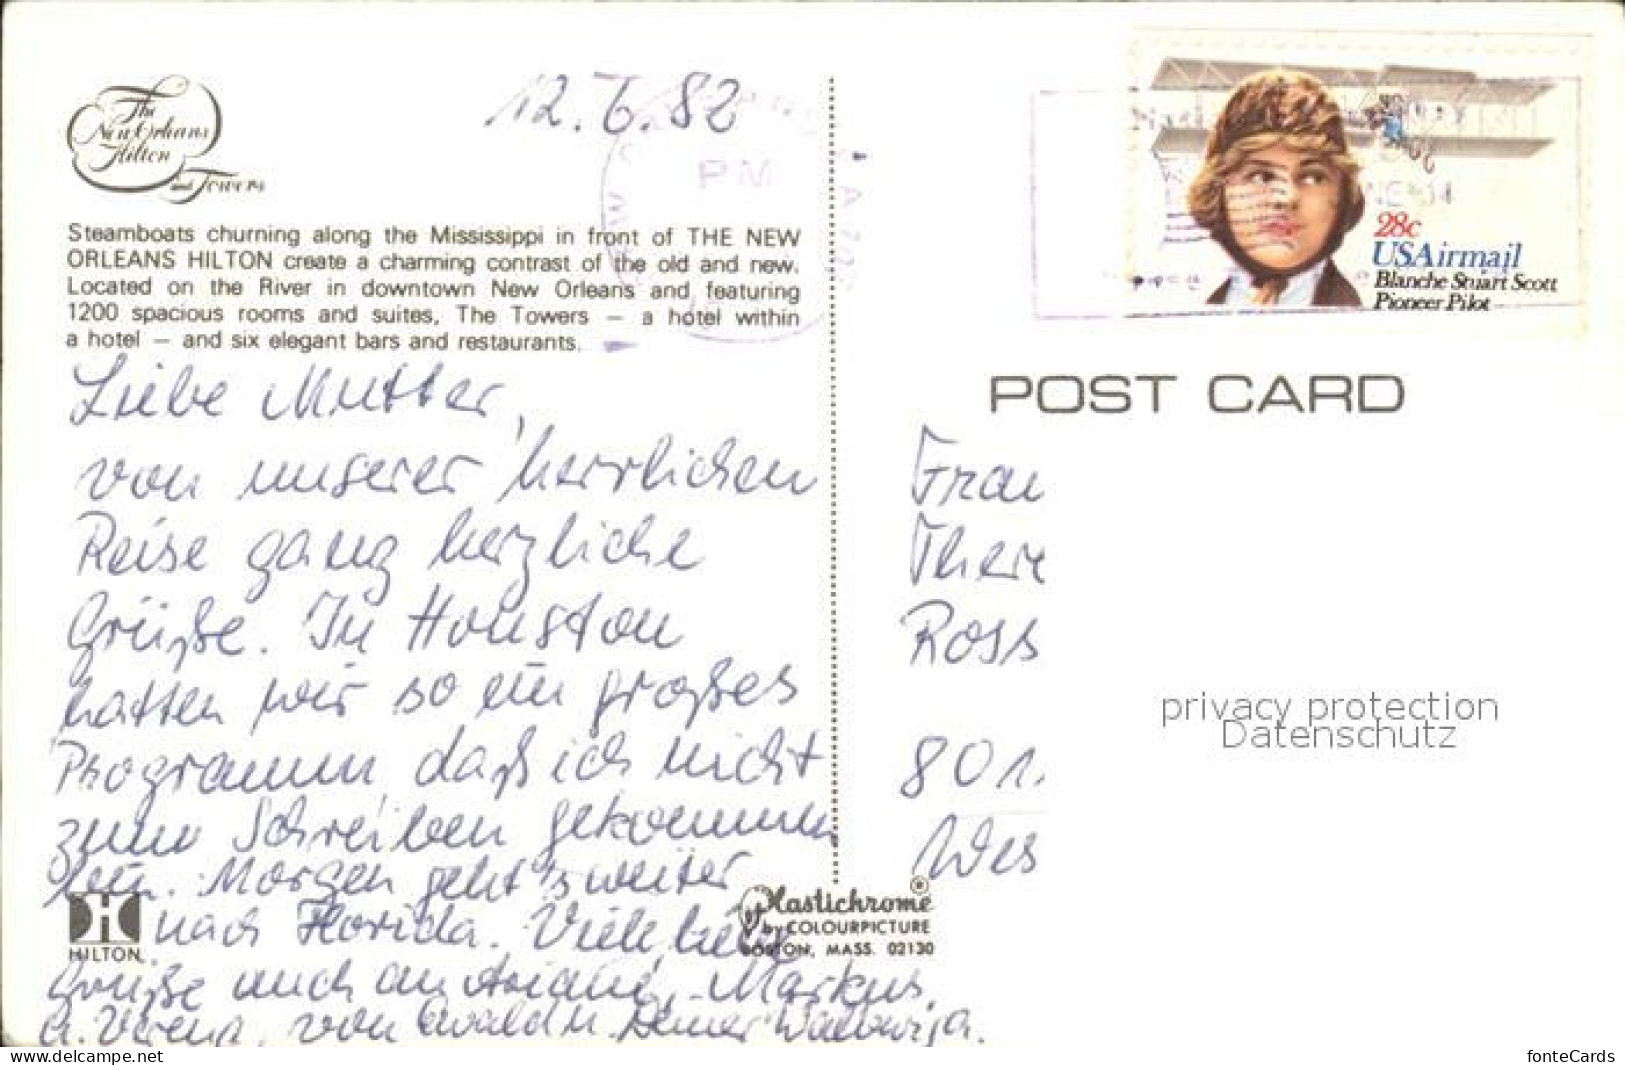 The
New Orleans
Hilton
and Towers
12.6.82
PM
Steamboats churning along the Mississippi in front of THE NEW
ORLEANS HILTON create a charming contrast of the old and new.
Located on the River in downtown New Orleans and featuring
1200 spacious rooms and suites, The Towers — a hotel within
a hotel — and six elegant bars and restaurants.
Liebe Mutter,
von unserer herrlichen
Reise ganz herzliche
Grüße. In Houston
hatten wir so ein großes
Programm, daß ich nicht
zum Schreiben gekommen
bin. Morgen geht's weiter
nach Florida. Viele liebe
Grüße auch an Ariane, Markus,
u. Verena, von Ewald u. Deiner
HILTON
Plastichrome®
by COLOURPICTURE
BOSTON, MASS. 02130
28c
USAirmail
Blanche Stuart Scott
Pioneer Pilot
POST CARD
Frau
There
Ross
801
Wes
privacy protection
Datenschutz
www.delcampe.net
fonteCards